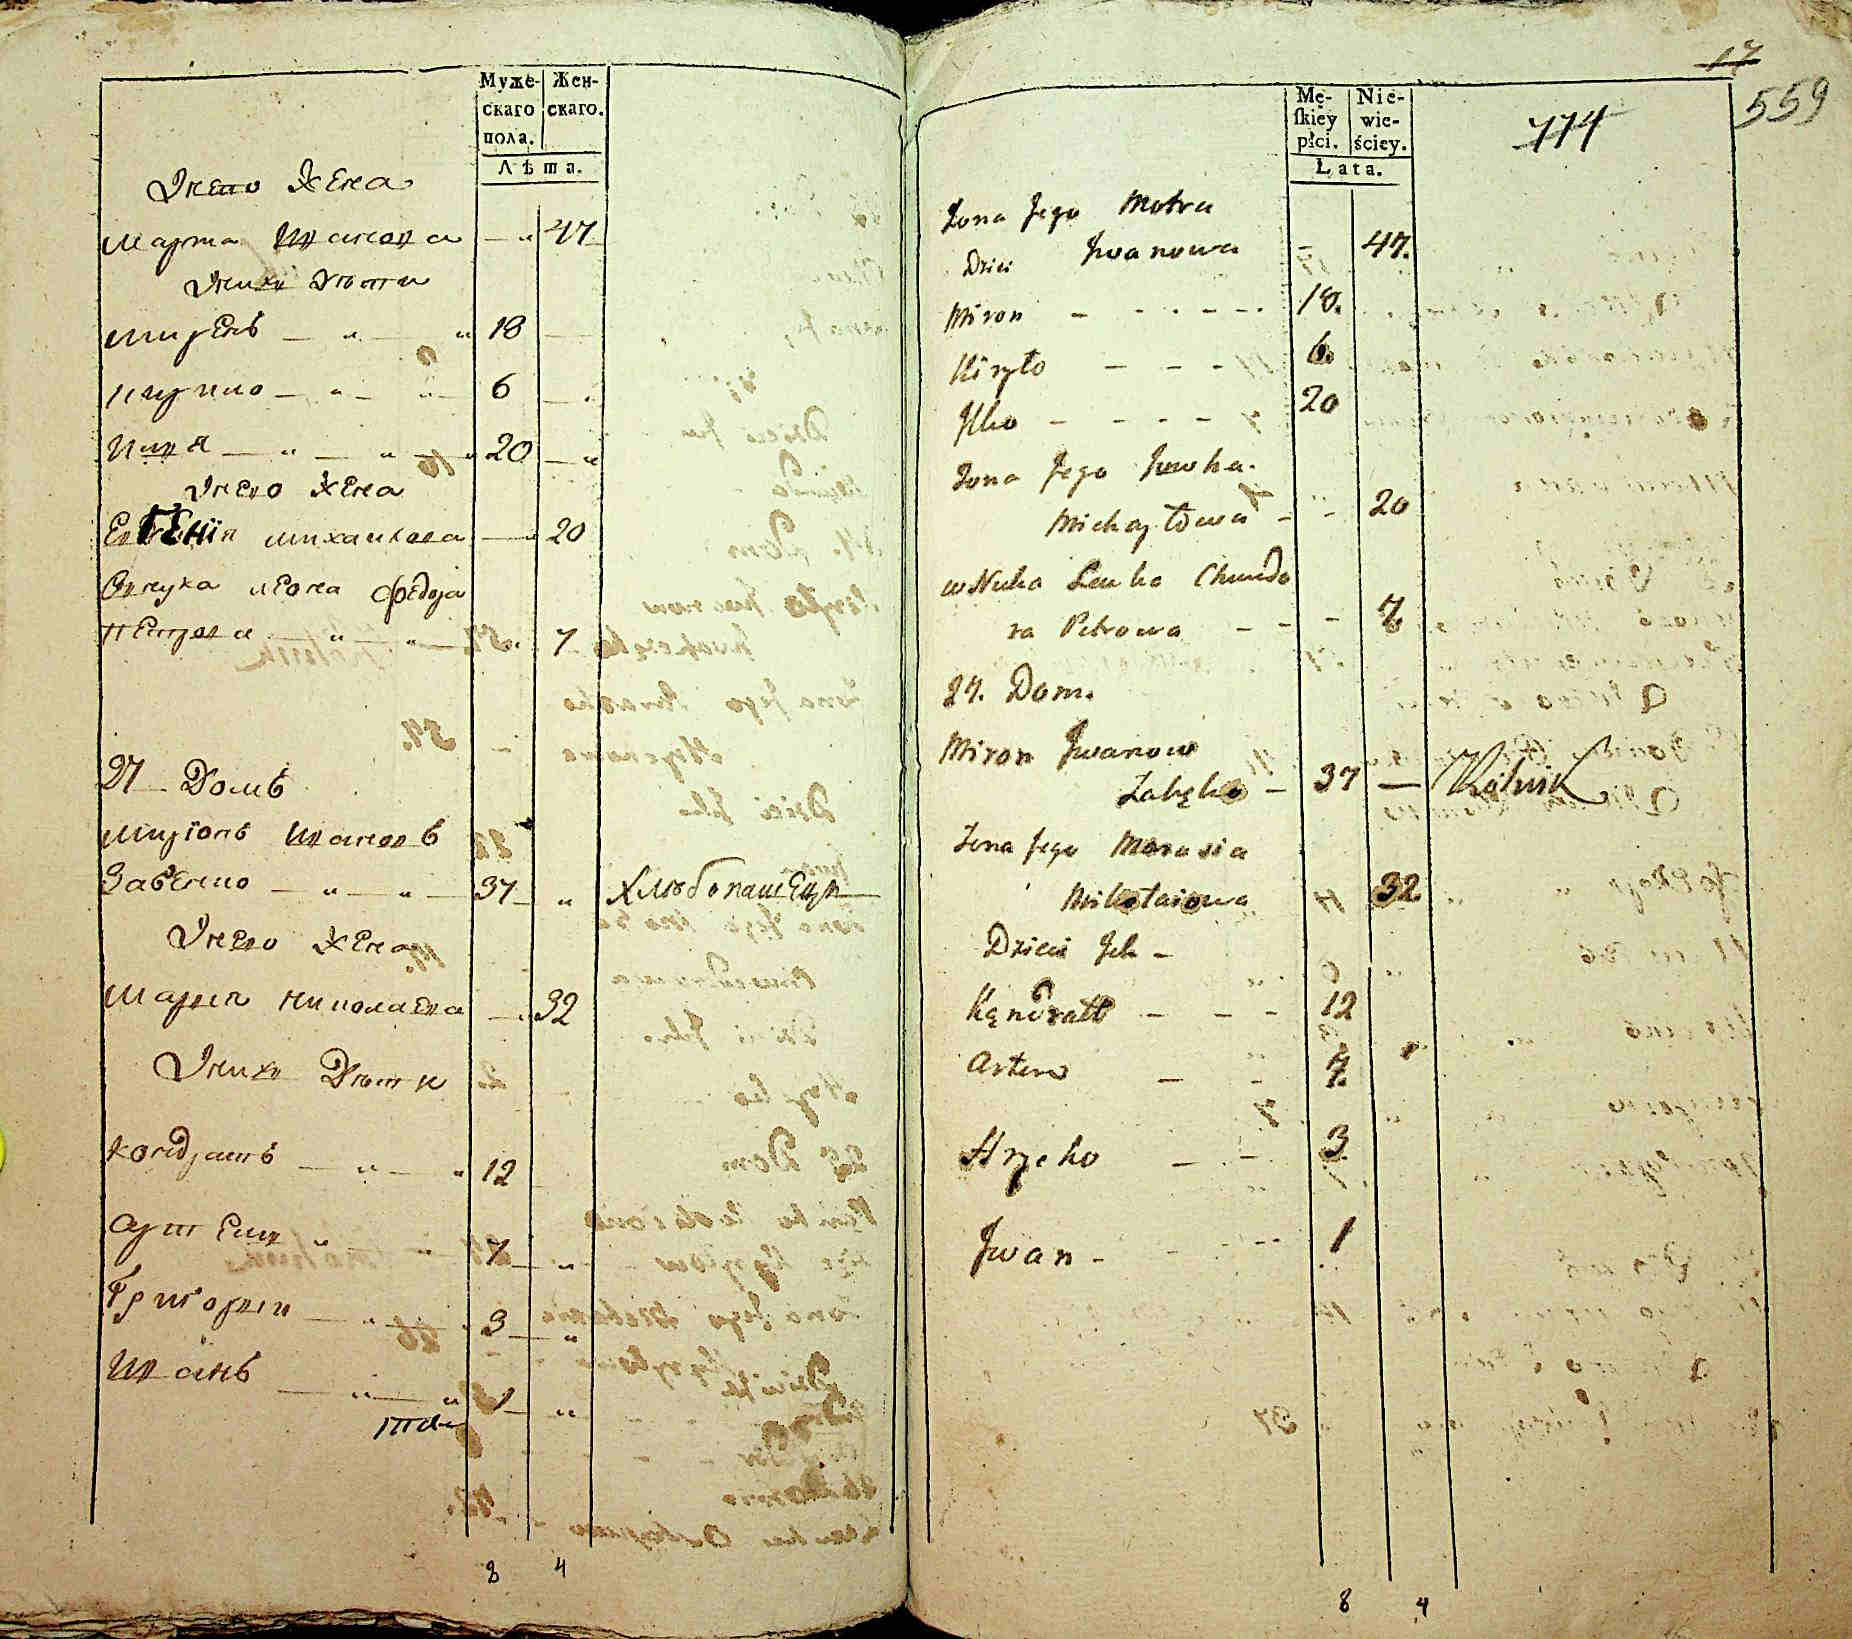 Муже-
скаго
пола.
Жен-
скаго.
Лѣта.
Жена
Марта Иванова — „ 47
Дѣти
Миронъ — „ — „ 18 —
Кирило — „ — „ 6 — „
Илія — „ — „ — 20 — „
Жена
Евгенія Михаилова — „ 20
Внука Федора
Петрова — „ — „ 7
27 Домъ
Миронъ Ивановъ
Забѣлко — „ — „ 37 „ Хлѣбопашецъ
Жена
Марья Николаева — „ 32
Дѣти
Кондратъ — „ — „ 12
Артемъ „ „ 7 „
Григорей — „ — „ 3 „
Иванъ — „ — „ 1 „
8 4
17
559
774
Mę-
ſkiey
płci.
Nie-
wie-
ściey.
Lata.
Żona Jego Motra
Dzieci Jwanowa – 47.
Miron – – – – 18.
Kiryło – – – 6.
Jlko – – – – 20
Żona Jego
Michayłowa – – 20
wNuka
ra Petrowa – – – 7.
27. Dom.
Miron Jwanow
Zabęłko – 37 — Rolnik
Żona Jego Marusia
Mikołaiowa 32
Dzieci Jch –
Kąndratt – – – 12
Artem – – 7.
Hrycko – – 3.
Jwan – – – – 1
8 4